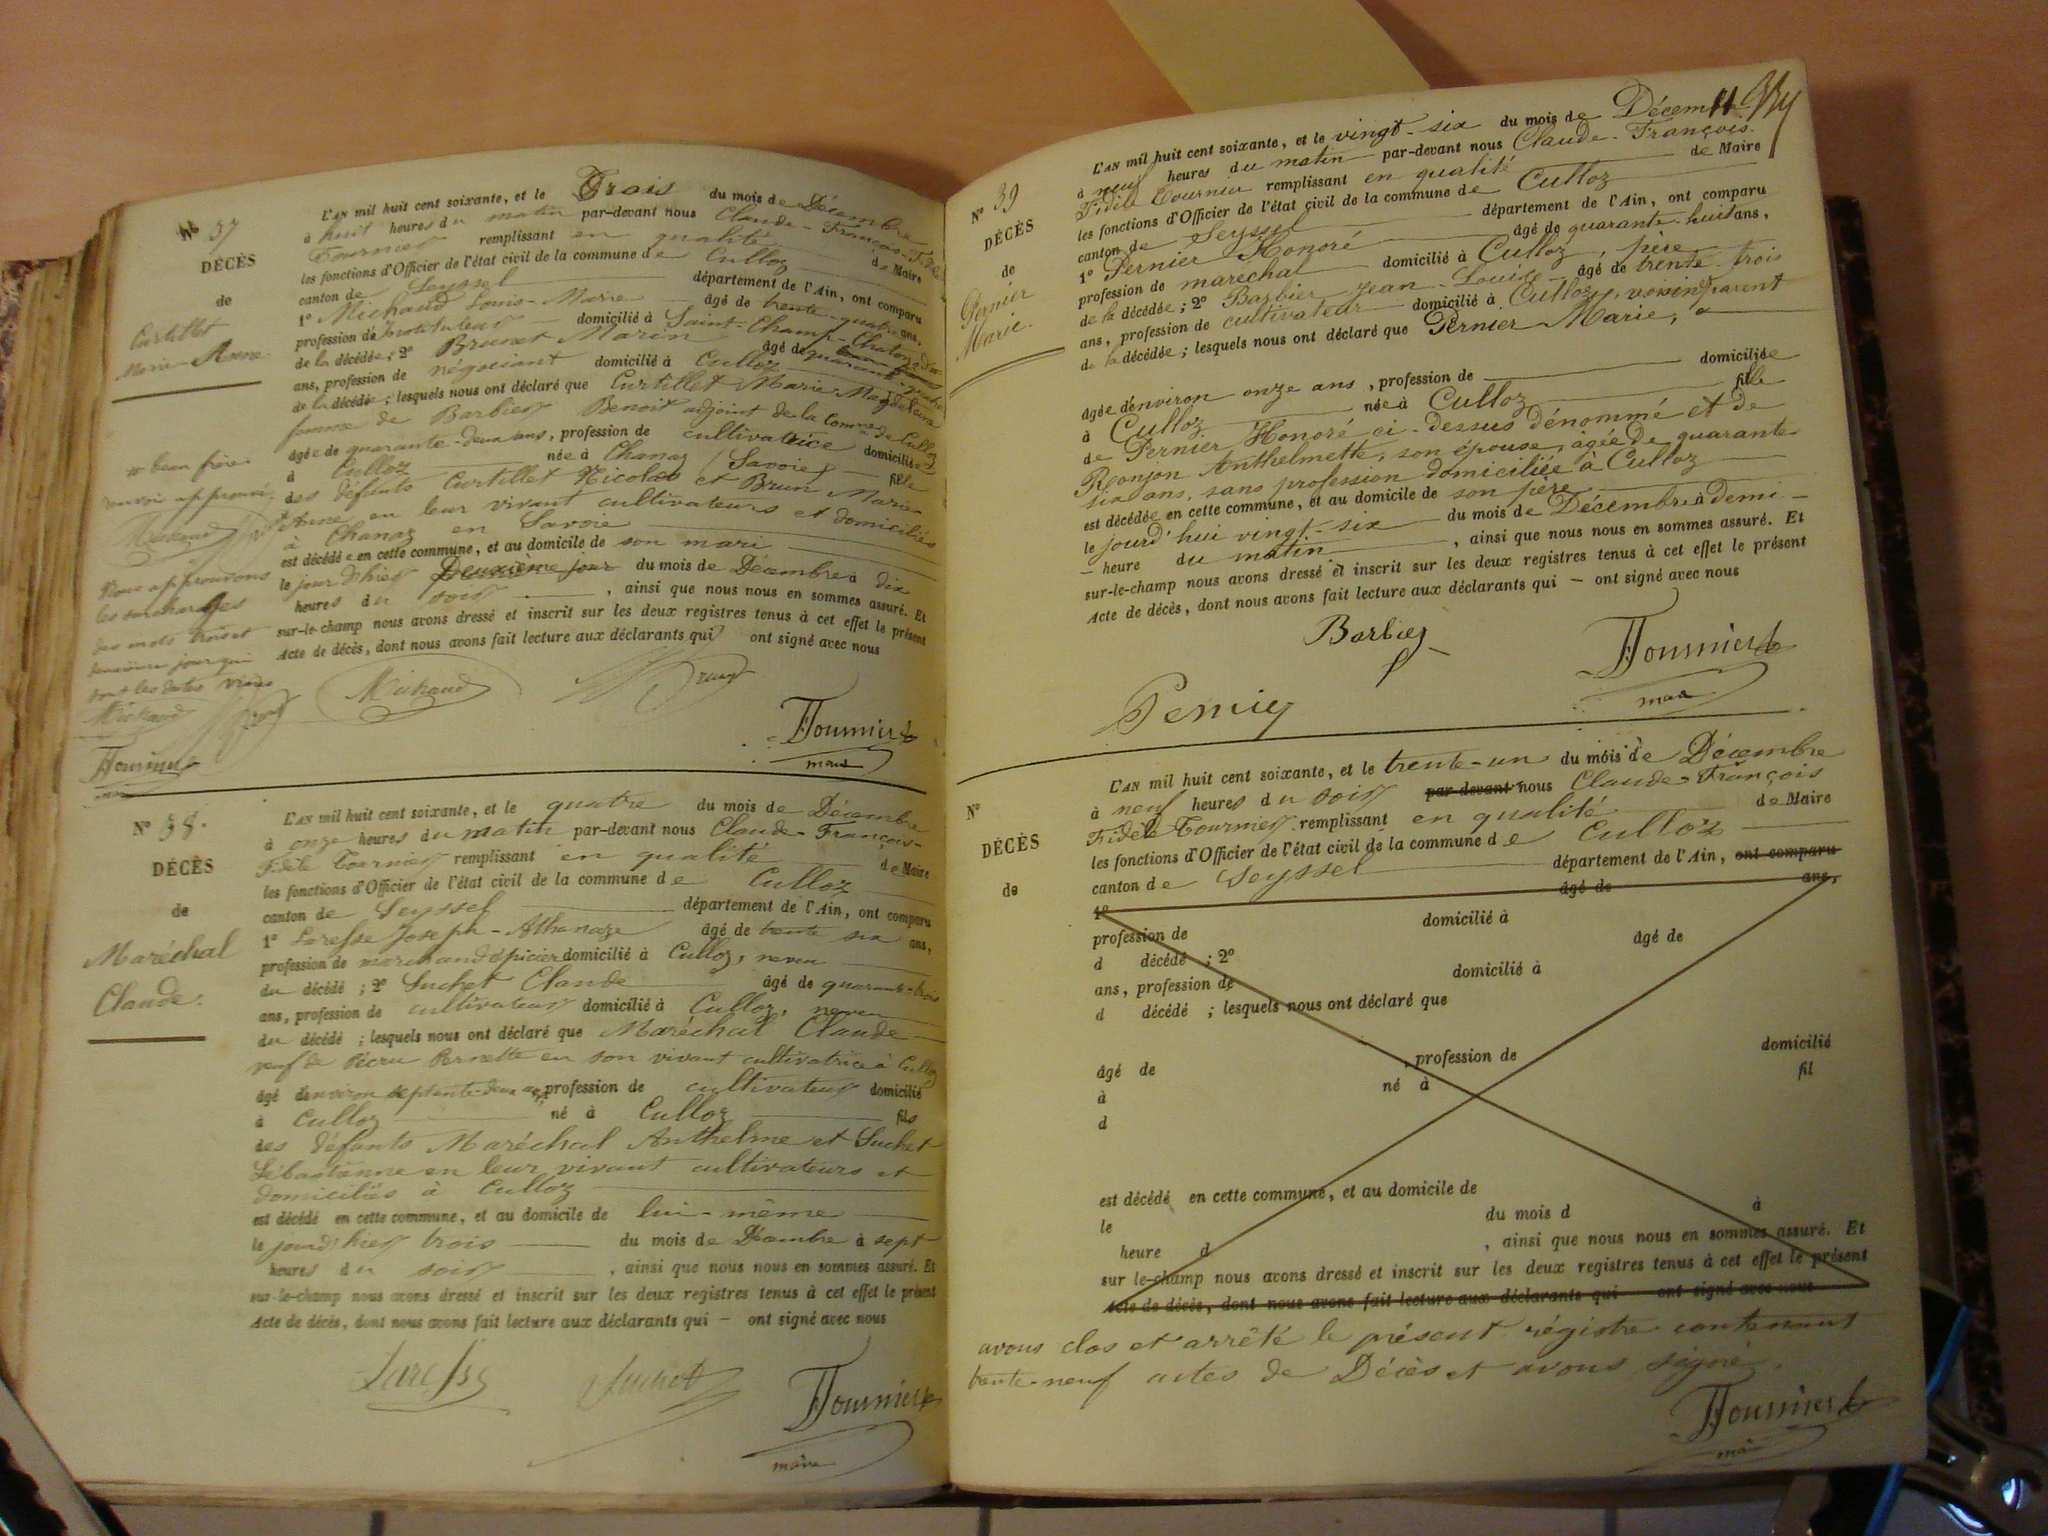 N° 37
DÉCÈS
de
Curtillet
Marie-Anne
L'AN mil huit cent soixante, et le Trois du mois de Décembre
à huit heures du matin par-devant nous Claude-François-Fidèle
Tournier remplissant en qualité de Maire
les fonctions d'Officier de l'état civil de la commune de Culloz
canton de Seyssel département de l'Ain, ont comparu
1° Michaud Louis-Marie âgé de trente-quatre ans,
profession d'Instituteur domicilié à Saint-Champ-Chatonod
de la décédée; 2° Brun Marin âgé de quarante-quatre
ans, profession de négociant domicilié à Culloz
de la décédée; lesquels nous ont déclaré que Curtillet Marie
femme de Barbier Benoit adjoint de la Comne de Culloz
âgée de quarante-deux ans, profession de cultivatrice domiciliée
à Culloz née à Chanaz (Savoie) fille
des défunts Curtillet Nicolas et Brun Marie
Anne en leur vivant cultivateurs et domiciliés
à Chanaz en Savoie
est décédée en cette commune, et au domicile de son mari
le jour d'hier Deuxième jour du mois de Décembre à dix
heures du soir, ainsi que nous nous en sommes assuré. Et
sur-le-champ nous avons dressé et inscrit sur les deux registres tenus à cet effet le présent
Acte de décès, dont nous avons fait lecture aux déclarants qui ont signé avec nous
beau frère
renvoi approuvé
Michaud
Nous approuvons
les surcharges
des mots trois et
deuxième jour qui
sont les dates
Michaud Brun
Tournier
Michaud Brun
Tournier
maire
N° 38.
DÉCÈS
de
Maréchal
Claude.
L'AN mil huit cent soixante, et le quatre du mois de Décembre
à onze heures du matin par-devant nous Claude-François-
Fidèle Tournier remplissant en qualité de Maire
les fonctions d'Officier de l'état civil de la commune de Culloz
canton de Seyssel département de l'Ain, ont comparu
1° Laresse Joseph-Athanaze âgé de trente six ans,
profession de marchand épicier domicilié à Culloz, neveu
du décédé; 2° Suchet Claude âgé de quarante-trois
ans, profession de cultivateur domicilié à Culloz, neveu
du décédé; lesquels nous ont déclaré que Maréchal Claude
veuf de Pernette en son vivant cultivatrice à Culloz
âgé d'environ septante-deux ans, profession de cultivateur domicilié
à Culloz né à Culloz fils
des défunts Maréchal Anthelme et Suchet
Sébastianne en leur vivant cultivateurs et
domiciliés à Culloz
est décédé en cette commune, et au domicile de lui-même
le jour d'hier trois du mois de Décembre à sept
heures du soir, ainsi que nous nous en sommes assuré. Et
sur-le-champ nous avons dressé et inscrit sur les deux registres tenus à cet effet le présent
Acte de décès, dont nous avons fait lecture aux déclarants qui — ont signé avec nous
Laresse Suchet Tournier
maire
N° 39
DÉCÈS
de
Pernier
Marie.
L'AN mil huit cent soixante, et le vingt-six du mois de Décembre
à neuf heures du matin par-devant nous Claude-François
Fidèle Tournier remplissant en qualité de Maire
les fonctions d'Officier de l'état civil de la commune de Culloz
canton de Seyssel département de l'Ain, ont comparu
1° Pernier Honoré âgé de quarante-huit ans,
profession de maréchal domicilié à Culloz, père
de la décédée; 2° Barbier Jean-Louis âgé de trente-trois
ans, profession de cultivateur domicilié à Culloz, voisin parent
de la décédée; lesquels nous ont déclaré que Pernier Marie,
âgée d'environ onze ans, profession de domiciliée
à Culloz née à Culloz fille
de Pernier Honoré ci-dessus dénommé et de
Ronjon Anthelmette, son épouse, âgée de quarante
six ans, sans profession domiciliée à Culloz
est décédée en cette commune, et au domicile de son père
le jourd'hui vingt-six du mois de Décembre à demi-
heure du matin, ainsi que nous nous en sommes assuré. Et
sur-le-champ nous avons dressé et inscrit sur les deux registres tenus à cet effet le présent
Acte de décès, dont nous avons fait lecture aux déclarants qui — ont signé avec nous
Barbier
Pernier Tournier
maire
N°
DÉCÈS
de
L'AN mil huit cent soixante, et le trente-un du mois de Décembre
à neuf heures du soir par-devant nous Claude-François
Fidèle Tournier remplissant en qualité de Maire
les fonctions d'Officier de l'état civil de la commune de Culloz
canton de Seyssel département de l'Ain, ont comparu
1° âgé de ans,
profession de domicilié à
d décédé ; 2° âgé de
ans, profession de domicilié à
d décédé ; lesquels nous ont déclaré que
âgé de , profession de domicilié
à né à fil
d
est décédé en cette commune, et au domicile de
le du mois d à
heure d , ainsi que nous nous en sommes assuré. Et
sur le-champ nous avons dressé et inscrit sur les deux registres tenus à cet effet le présent
Acte de décès, dont nous avons fait lecture aux déclarants qui ont signé avec nous
avons clos et arrêté le présent régistre contenant
trente-neuf actes de Décès et avons signé.
Tournier
maire